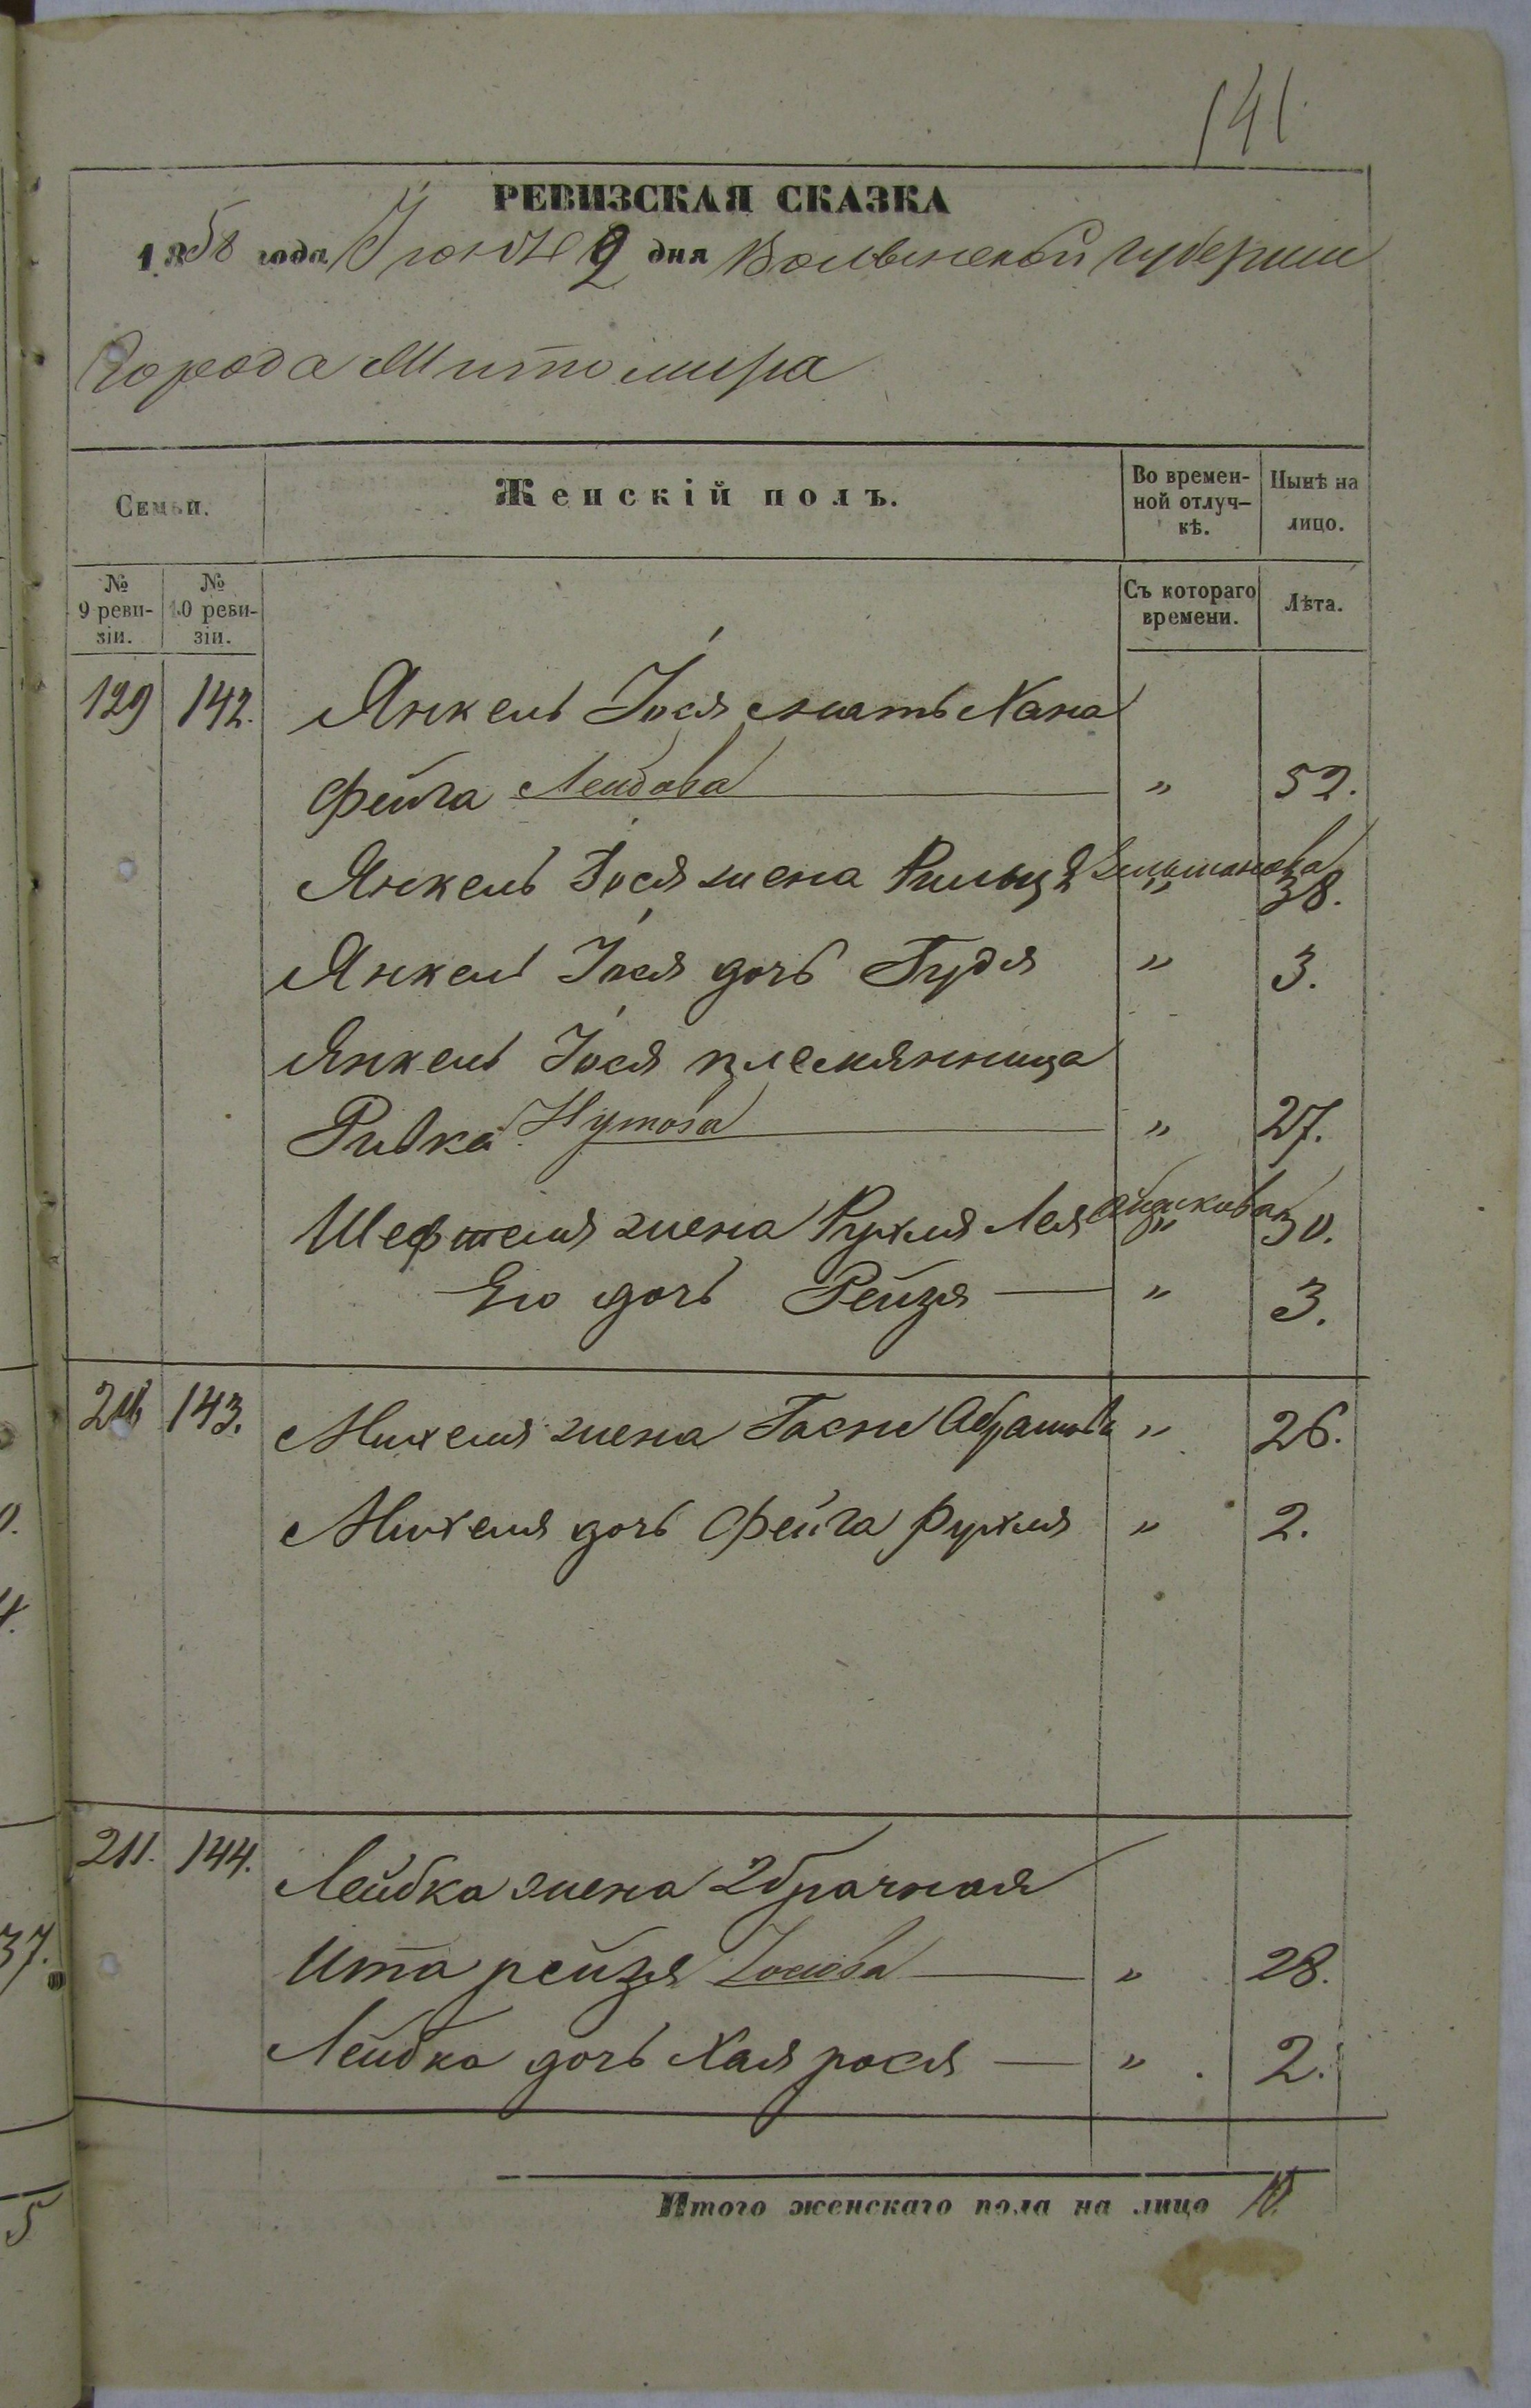 141.
РЕВИЗСКАЯ СКАЗКА
1858 года Июня 9 дня Волынской губернии
Города Житомира
Семьи.
Женскій полъ.
Во временной отлучкѣ.
Нынѣ на лицо.
№ 9 ревизіи.
№ 10 ревизіи.
Съ котораго времени.
Лѣта.
129 142. Янкель Іося мать Хана
Фейга Лейбова — " 52.
Янкель Іося жена Рильця Зельманова " 38.
Янкель Іося дочь Гудя " 3.
Янкель Іося племянница
Ривка Нутова — " 27.
Шефтеля жена Рухля Лея " 30.
Его дочь Рейзя — " 3.
143. Михеля жена Гасни Абрамова " 26.
Михеля дочь Фейга Рухля " 2.
211. 144. Лейбка жена 2 брачная
Ита рейзя Іосіова — " 28.
Лейбка дочь Хая рося — " 2.
Итого женскаго пола на лицо 10.
0.
4.
37.
5